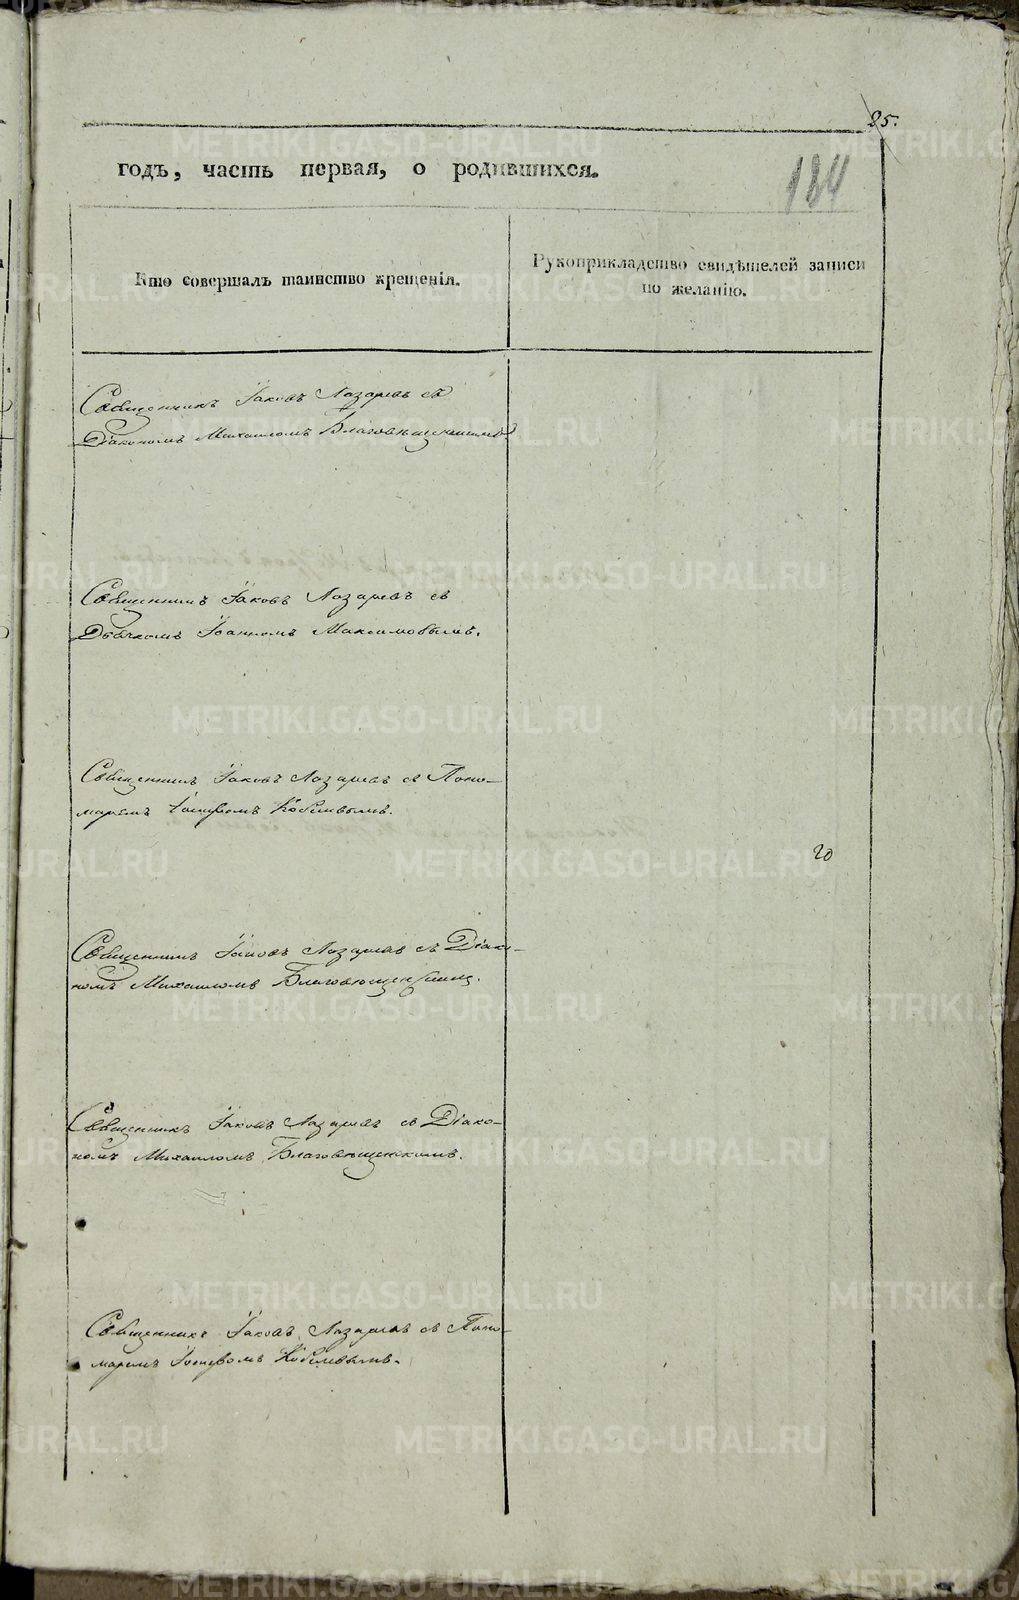 25.
годъ, часть первая, о родившихся.
184
Кто совершалъ таинство крещенія.
Рукоприкладство свидѣтелей записи
по желанію.
Священникъ Іаковъ Лазаревъ съ
Діакономъ Михаиломъ Благовѣщенскимъ
Священникъ Іаковъ Лазаревъ съ
Дьячкомъ Іоанномъ Максимовымъ.
Священникъ Іаковъ Лазаревъ съ Поно-
маремъ Іосифомъ
20
Священникъ Іаковъ Лазаревъ съ Діако-
номъ Михаиломъ Благовѣщенскимъ.
Священникъ Іаковъ Лазаревъ съ Діако-
номъ Михаиломъ Благовѣщенскимъ.
Священникъ Іаковъ Лазаревъ съ Поно-
маремъ Іосифомъ
METRIKI.GASO-URAL.RU